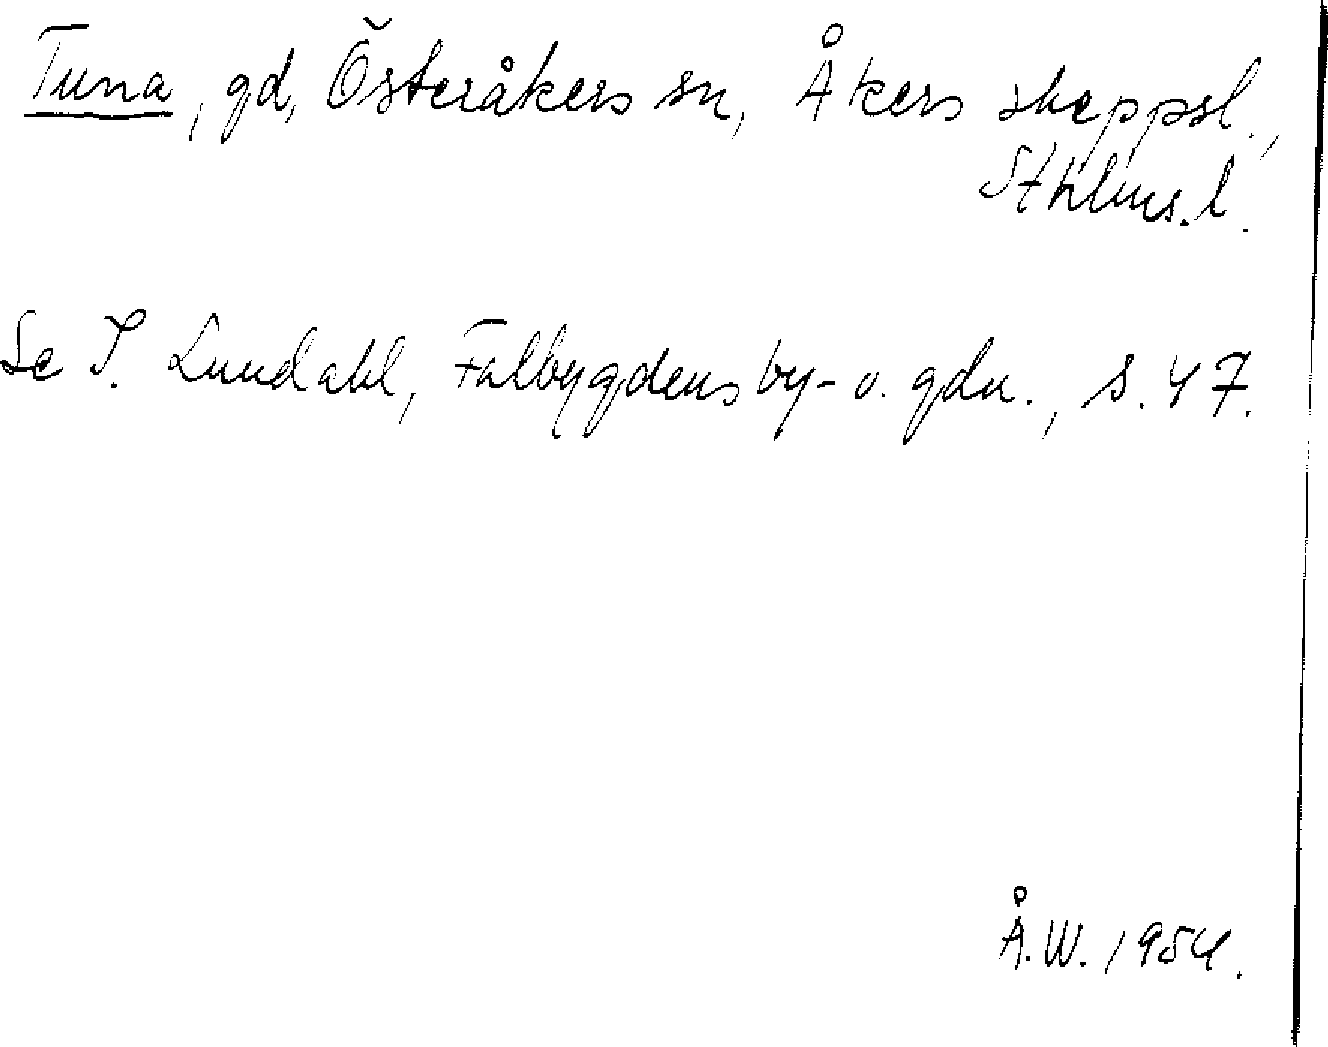 Tuna, gd, Österåkers sn, Åkers skeppsl.,
Sthlms. l.
Se I. Lundahl, Falbygdens by- o. gdn., s. 47.
Å.W. 1954.